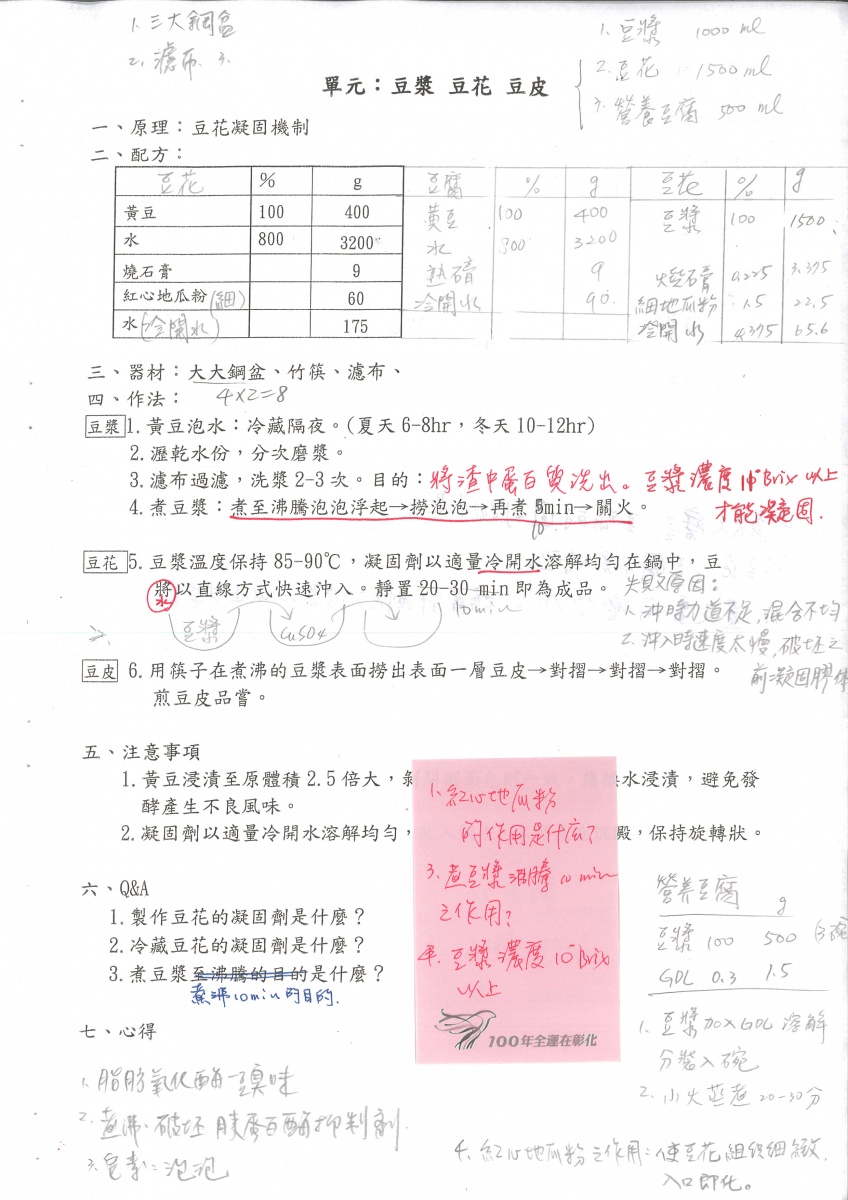 1. 三大鋼盆
2. 濾布. 3.
1. 豆漿 1000 ml
2. 豆花 1500 ml
3. 營養豆腐 500 ml
單元：豆漿 豆花 豆皮
一、原理：豆花凝固機制
二、配方：
豆花 % g
黃豆 100 400
水 800 3200
燒石膏 9
紅心地瓜粉(細) 60
水(冷開水) 175
豆腐 % g
黃豆 100 400
水 800 3200
熟石膏 9
冷開水 90.
豆花 % g
豆漿 100 1500
燒石膏 0.225 3.375
細地瓜粉 1.5 22.5
冷開水 4.375 65.6
三、器材：大大鋼盆、竹筷、濾布、
四、作法： 4×2=8
豆漿 1.黃豆泡水：冷藏隔夜。(夏天 6-8hr，冬天 10-12hr)
2.瀝乾水份，分次磨漿。
3.濾布過濾，洗漿 2-3 次。目的：將渣中蛋白質洗出。豆漿濃度10°Brix以上
才能凝固.
4.煮豆漿：煮至沸騰泡泡浮起→撈泡泡→再煮 5min→關火。
10
豆花 5.豆漿溫度保持 85-90℃，凝固劑以適量冷開水溶解均勻在鍋中，豆
將以直線方式快速沖入。靜置 20-30 min 即為成品。
水
10min
豆漿 CuSO4
失敗原因：
1. 沖時力道不足, 混合不均
2. 沖入時速度太慢, 破坏之
前凝固膠体
豆皮 6.用筷子在煮沸的豆漿表面撈出表面一層豆皮→對摺→對摺→對摺。
煎豆皮品嘗。
五、注意事項
1.黃豆浸漬至原體積 2.5 倍大，
水浸漬，避免發
酵產生不良風味。
2.凝固劑以適量冷開水溶解均勻，
殿，保持旋轉狀。
1. 紅心地瓜粉
的作用是什麼?
3. 煮豆漿沸騰 10 min
之作用?
4. 豆漿濃度 10°Brix
以上
100年全運在彰化
六、Q&A
1.製作豆花的凝固劑是什麼？
2.冷藏豆花的凝固劑是什麼？
3.煮豆漿至沸騰的目的是什麼？
煮沸10min的目的.
七、心得
1. 脂肪氧化酶-豆臭味
2. 煮沸: 破坏胰蛋白酶抑制劑
3. 皂素: 泡泡
營养豆腐 g
豆漿 100 500
GDL 0.3 1.5
1. 豆漿加入GDL 溶解
分裝入碗
2. 小火蒸煮 20-30分
4. 紅心地瓜粉之作用: 使豆花組織細緻,
入口即化。